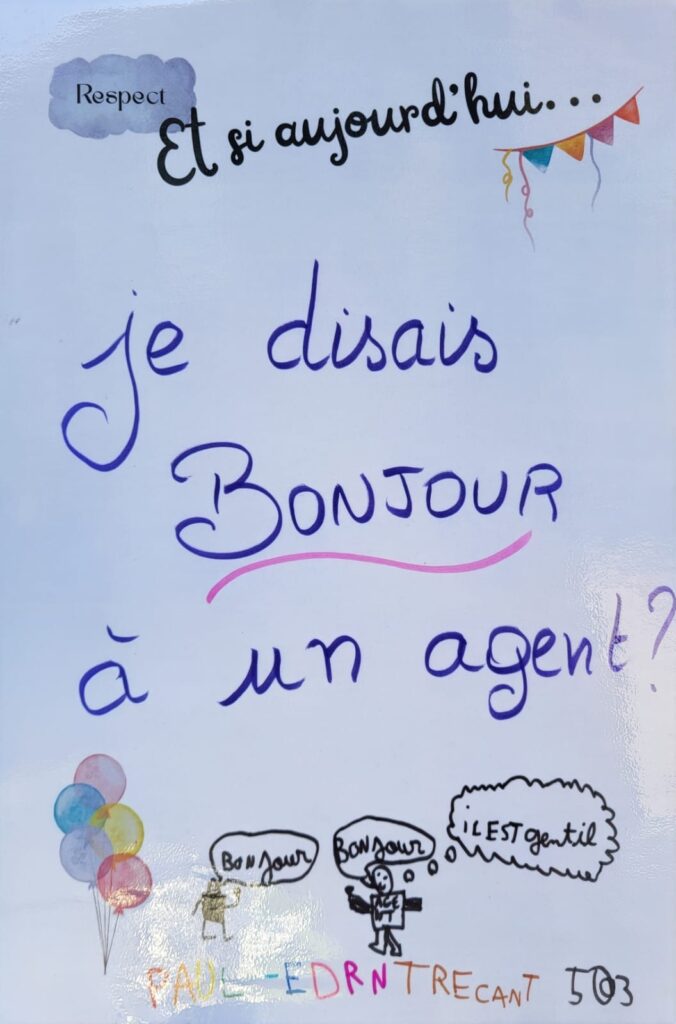 Respect
Et si aujourd'hui...
je disais
BONJOUR
à un agent?
BONJour
BONJour
iL EST gentil
AGE
NT
PAUL-EDRN TRECANT 503